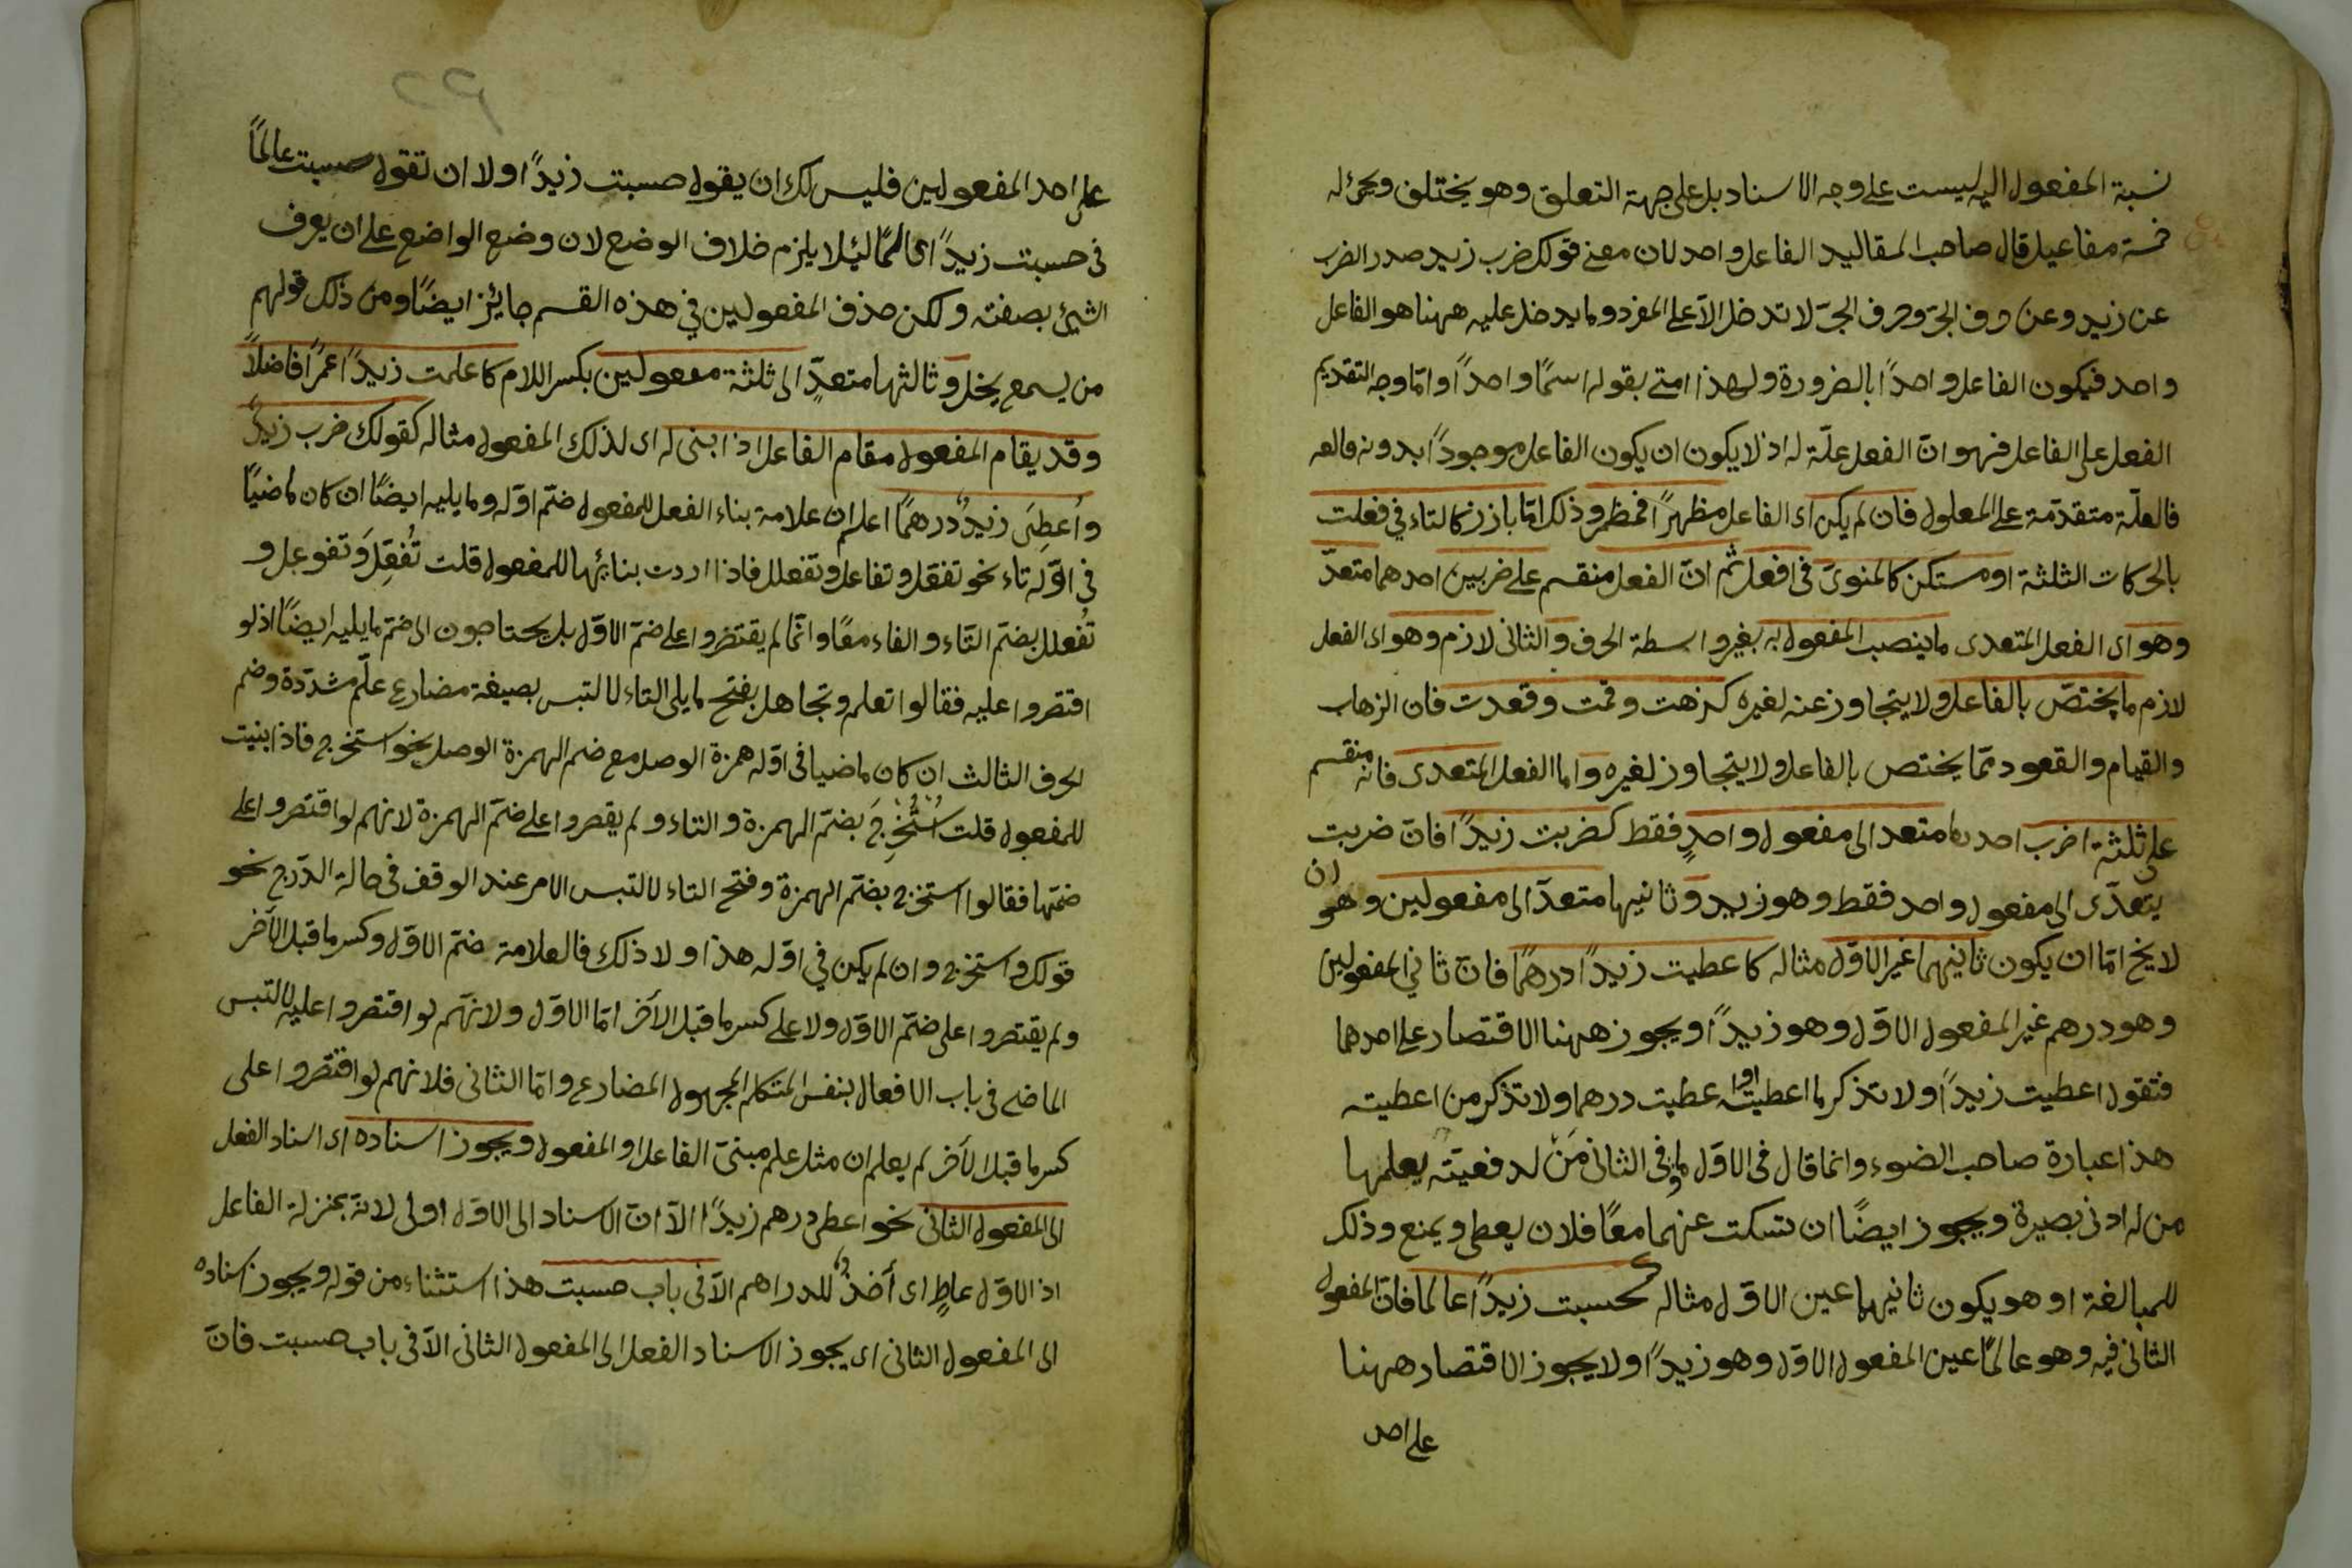 نسبة المفعول اليه ليست على وجه الاسناد بل على جهة التعلق وهو يختلف ويجئ له
خمسة مفاعيل قال صاحب المقاليد الفاعل واحد لان معنى قولك ضرب زيد صدر الضرب
عن زيد وعن حرف الجرّ وحرف الجرّ لا تدخل الّا على المفرد وما يدخل عليه ههنا هو الفاعل
واحد فيكون الفاعل واحدًا بالضرورة ولهذا اتى بقوله اسمًا واحدًا وامّا وجه التقديم
الفعل على الفاعل فهو انّ الفعل علّة له اذ لا يكون ان يكون الفاعل موجودًا بدونه فالعه
فالعلّة متقدّمة على المعلول فان لم يكن اى الفاعل مظهرًا فمضمر وذلك امّا بارز كالتاء في فعلت
بالحركات الثلثة او مستكن كالمنوىّ فى افعل ثم انّ الفعل منقسم على ضربين احدهما متعدّ
وهو اى الفعل المتعدى ما ينصب المفعول به بغير واسطة الحرف والثانى لازم وهو اى الفعل
لازم ما يختصّ بالفاعل ولا يتجاوز عنه لغيره كذهبت وقمت وقعدت فان الذهاب
والقيام والقعود ممّا يختص بالفاعل ولا يتجاوز لغيره واما الفعل المتعدى فانه منقسم
على ثلثة اضرب احدها متعد الى مفعول واحدٍ فقط كضربت زيدًا فانّ ضربت
يتعدّى الى مفعول واحد فقط وهو زيد وثانيها متعدّ الى مفعولين وهو ان
لا يخ امّا ان يكون ثانيهما غير الاوّل مثاله كاعطيت زيدًا درهمًا فانّ ثاني المفعولين
وهو درهم غير المفعول الاوّل وهو زيدًا ويجوز ههنا الاقتصار على احدهما
فتقول اعطيت زيدًا ولا تذكر ما اعطيته او اعطيت درهما ولا تذكر من اعطيته
هذا عبارة صاحب الضوء وانما قال فى الاوّل ما وفى الثانى مَنْ لدقيقة يعلمها
من له ادنى بصيرة ويجوز ايضًا ان تسكت عنهما معًا فلان يعطى ويمنع وذلك
للمبالغة او هو يكون ثانيهما عين الاوّل مثاله كحسبت زيدًا عالما فانّ المفعول
الثانى فيه وهو عالمًا عين المفعول الاوّل وهو زيدًا ولا يجوز الاقتصار ههنا
على احد
٢٩
على احد المفعولين فليس لك ان يقول حسبت زيدًا ولا ان تقول حسبت عالمًا
فى حسبت زيدًا عالمًا لئلا يلزم خلاف الوضع لان وضع الواضع على ان يعرف
الشئ بصفته ولكن حذف المفعولين في هذه القسم جايز ايضًا ومن ذلك قولهم
من يسمع يخل وثالثها متعدٍّ الى ثلثة مفعولين بكسر اللام كاعلمت زيدًا عمرًا فاضلًا
وقد يقام المفعول مقام الفاعل اذا ابنى له اى لذلك المفعول مثاله كقولك ضرب زيدٌ
واُعطِىَ زيدٌ درهمًا اعلم ان علامة بناء الفعل للمفعول ضمّ اوّله وما يليه ايضًا ان كان ماضيًا
فى اوّله تاء نحو تفعّل وتفاعل وتفعلل فاذا اردت بنائها للمفعول قلت تُفُعِّلَ وتفوعل و
تُفعلل بضمّ التاء والفاء معًا وانّما لم يقتصروا على ضمّ الاوّل بل يحتاجون الى ضمّ ما يليه ايضًا اذ لو
اقتصروا عليه فقالوا تعلم وتجاهل بفتح ما يلى التاء لالتبس بصيغة مضارع علّم مشدّدة وضم
الحرف الثالث ان كان ماضيا فى اوّله همزة الوصل مع ضم الهمزة الوصل نحو استخرج فاذا بنيت
للمفعول قلت اُسْتُخْرِجَ بضمّ الهمزة والتاء ولم يقصروا على ضمّ الهمزة لانهم لو اقتصروا على
ضمّها فقالوا استخرج بضمّ الهمزة وفتح التاء لالتبس الامر عند الوقف فى حالة الدّرج نحو
قولك واستخرج وان لم يكن في اوّله هذا ولا ذلك فالعلامة ضمّ الاوّل وكسر ما قبل الآخر
ولم يقتصروا على ضمّ الاوّل ولا على كسر ما قبل الآخر امّا الاوّل ولانّهم لو اقتصروا عليه لالتبس
الماضى فى باب الافعال بنفس المتكلم المجهول المضارع وامّا الثانى فلانهم لو اقتصروا على
كسر ما قبل الآخر لم يعلم ان مثل علم مبنىّ الفاعل او المفعول ويجوز اسناده اى اسناد الفعل
الى المفعول الثانى نحو اعطى درهم زيدًا الّا انّ الاسناد الى الاوّل اولى لانّه بمنزلة الفاعل
اذ الاوّل عاطٍ اى آخذٌ للدراهم الّا فى باب حسبت هذا استثناء من قوله ويجوز اسناده
الى المفعول الثانى اى يجوز الاسناد الفعل الى المفعول الثانى الّا فى باب حسبت فانّ